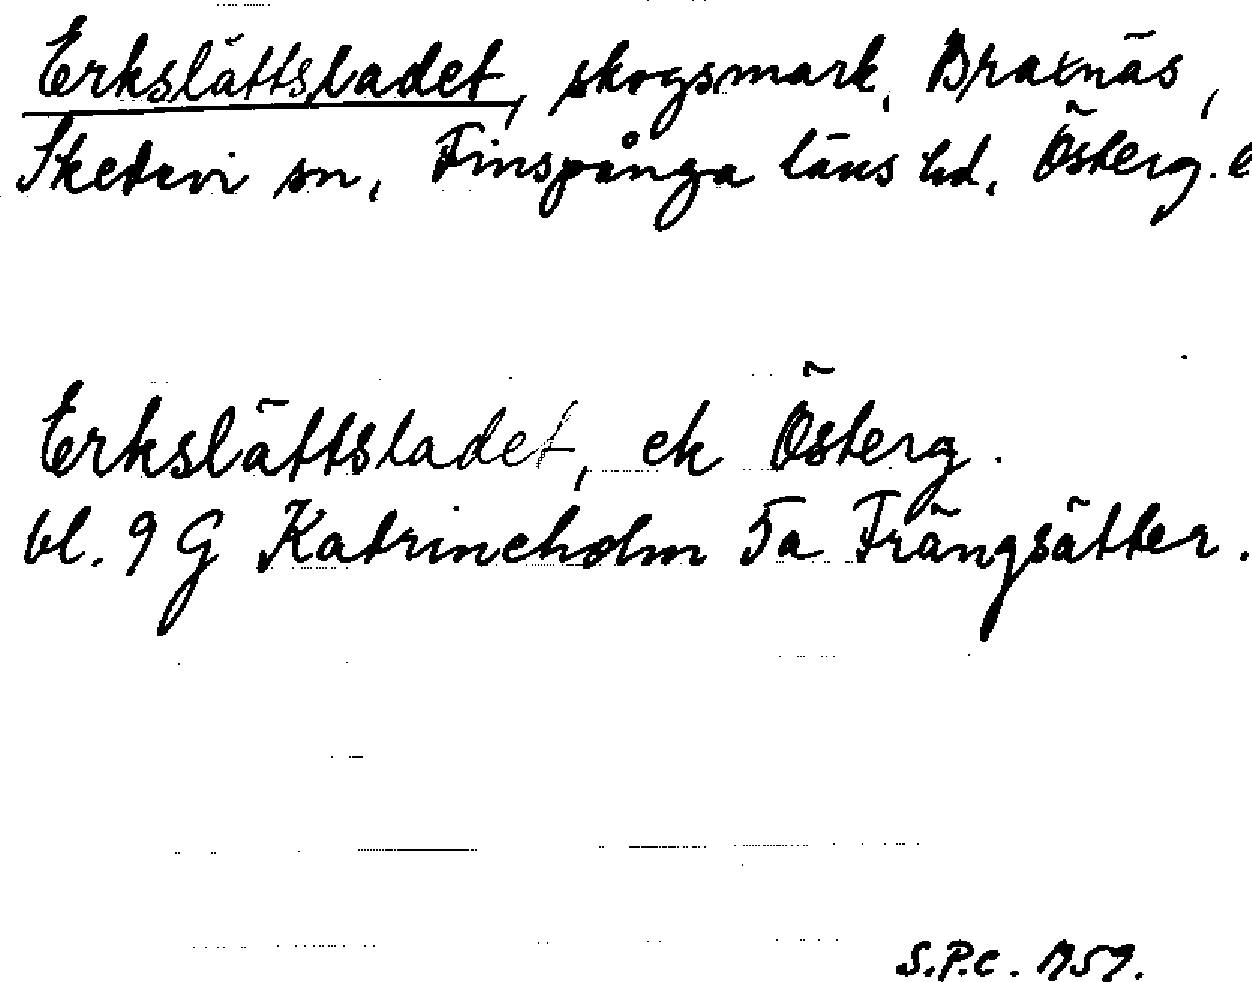 Erkslättsladet, skogsmark, Braxnäs,
Skedevi sn, Finspånga läns hd, Österg.
Erkslättsladet, ek Österg.
bl. 9 G Katrineholm 5a Frängsätter.
S.P.C.